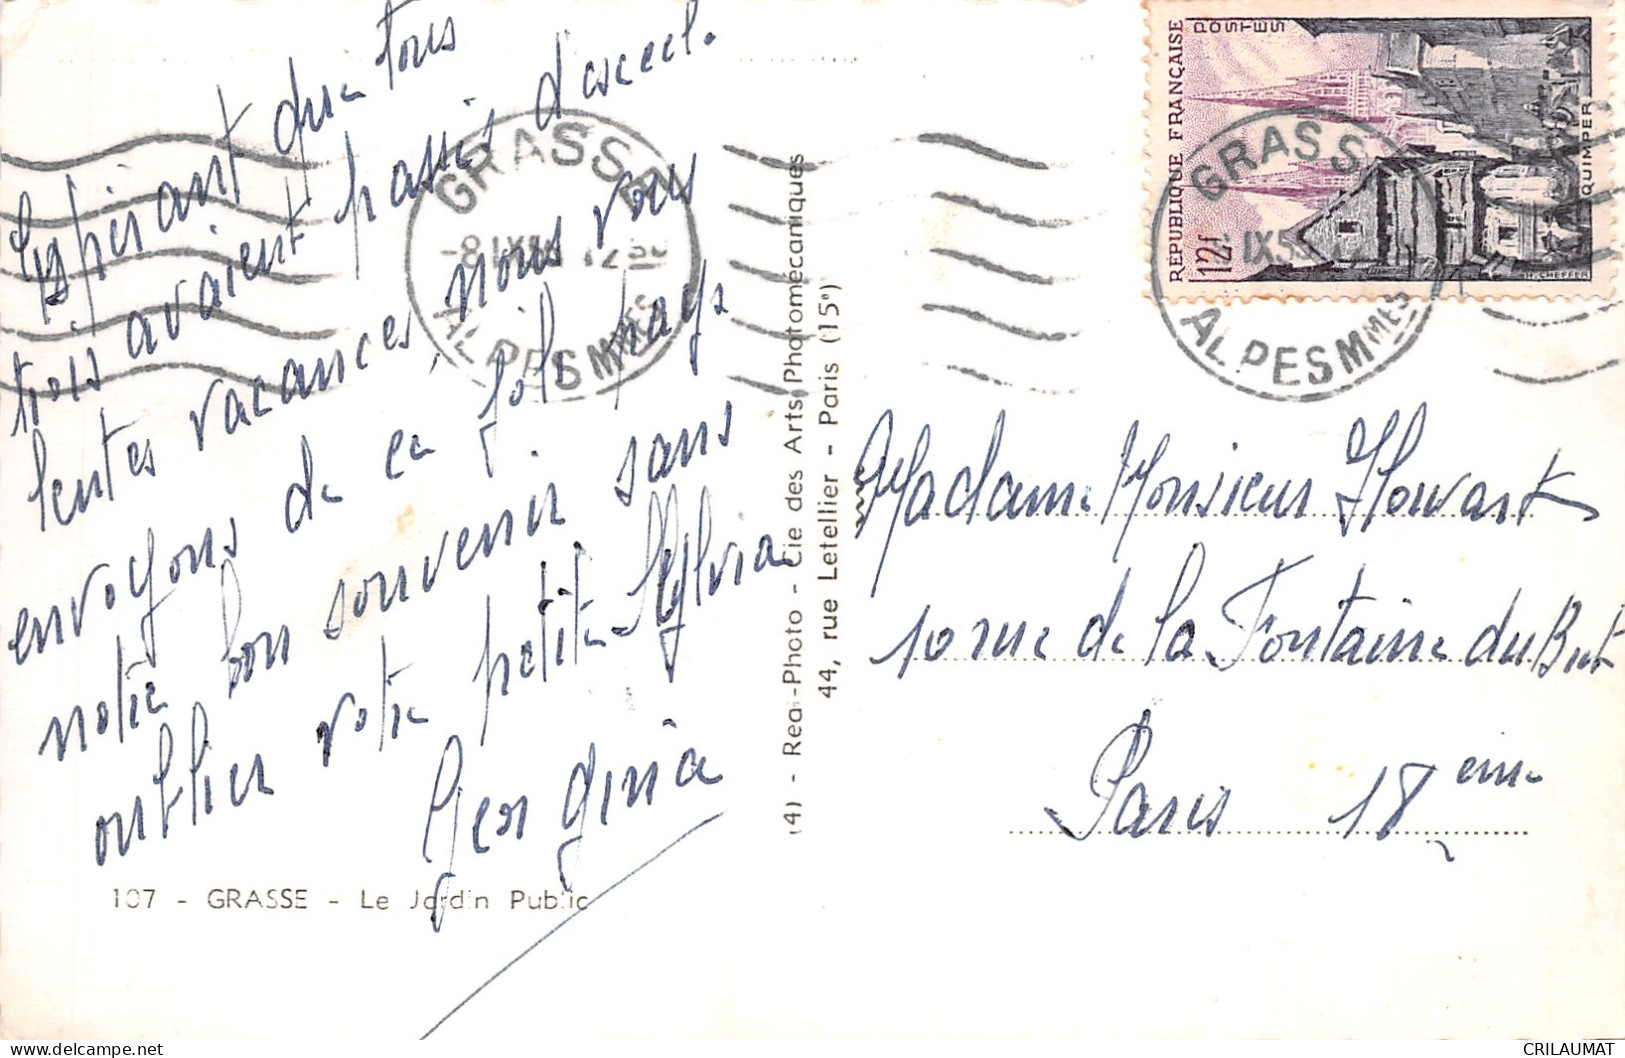 Espérant que tous
trois avaient passés d'excel.
lentes vacances, nous vous
envoyons de ce joli pays
notre bon souvenir sans
oublier votre petite Sylvia
Georgina
107 - GRASSE - Le Jardin Public
(4) - Real-Photo - Cie des Arts Photomécaniques
44, rue Letellier - Paris (15e)
GRASSE
-8 IX 12 30
ALPES MMES
RÉPUBLIQUE FRANÇAISE
POSTES
12F
QUIMPER
H. CHEFFER
GRASSE
IX 5
ALPES MMES
Madame Monsieur Howart
10 rue de la Fontaine du But
Paris 18 eme
www.delcampe.net
CRILAUMAT